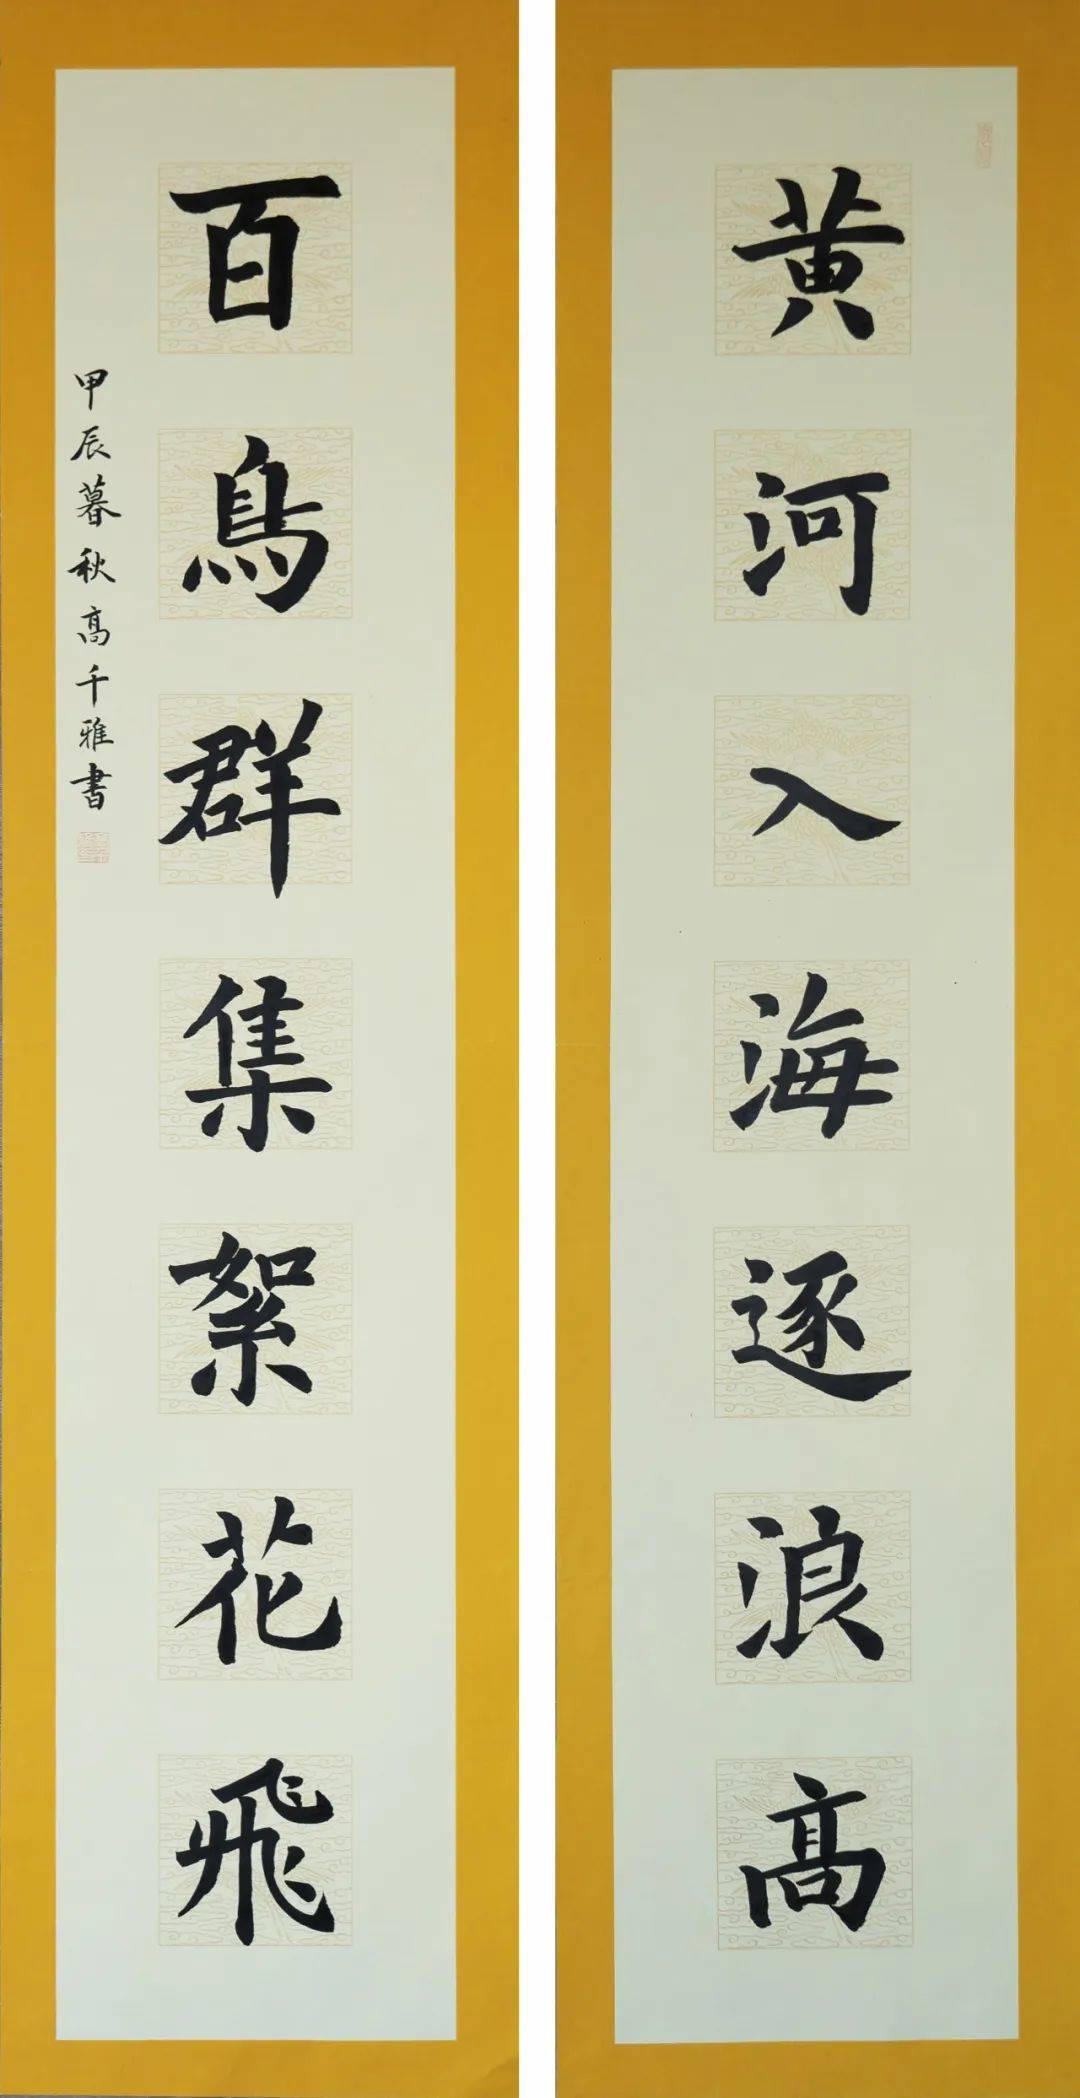 黄河入海逐浪髙
百鳥群集絮花飛
甲辰暮秋髙千雅书